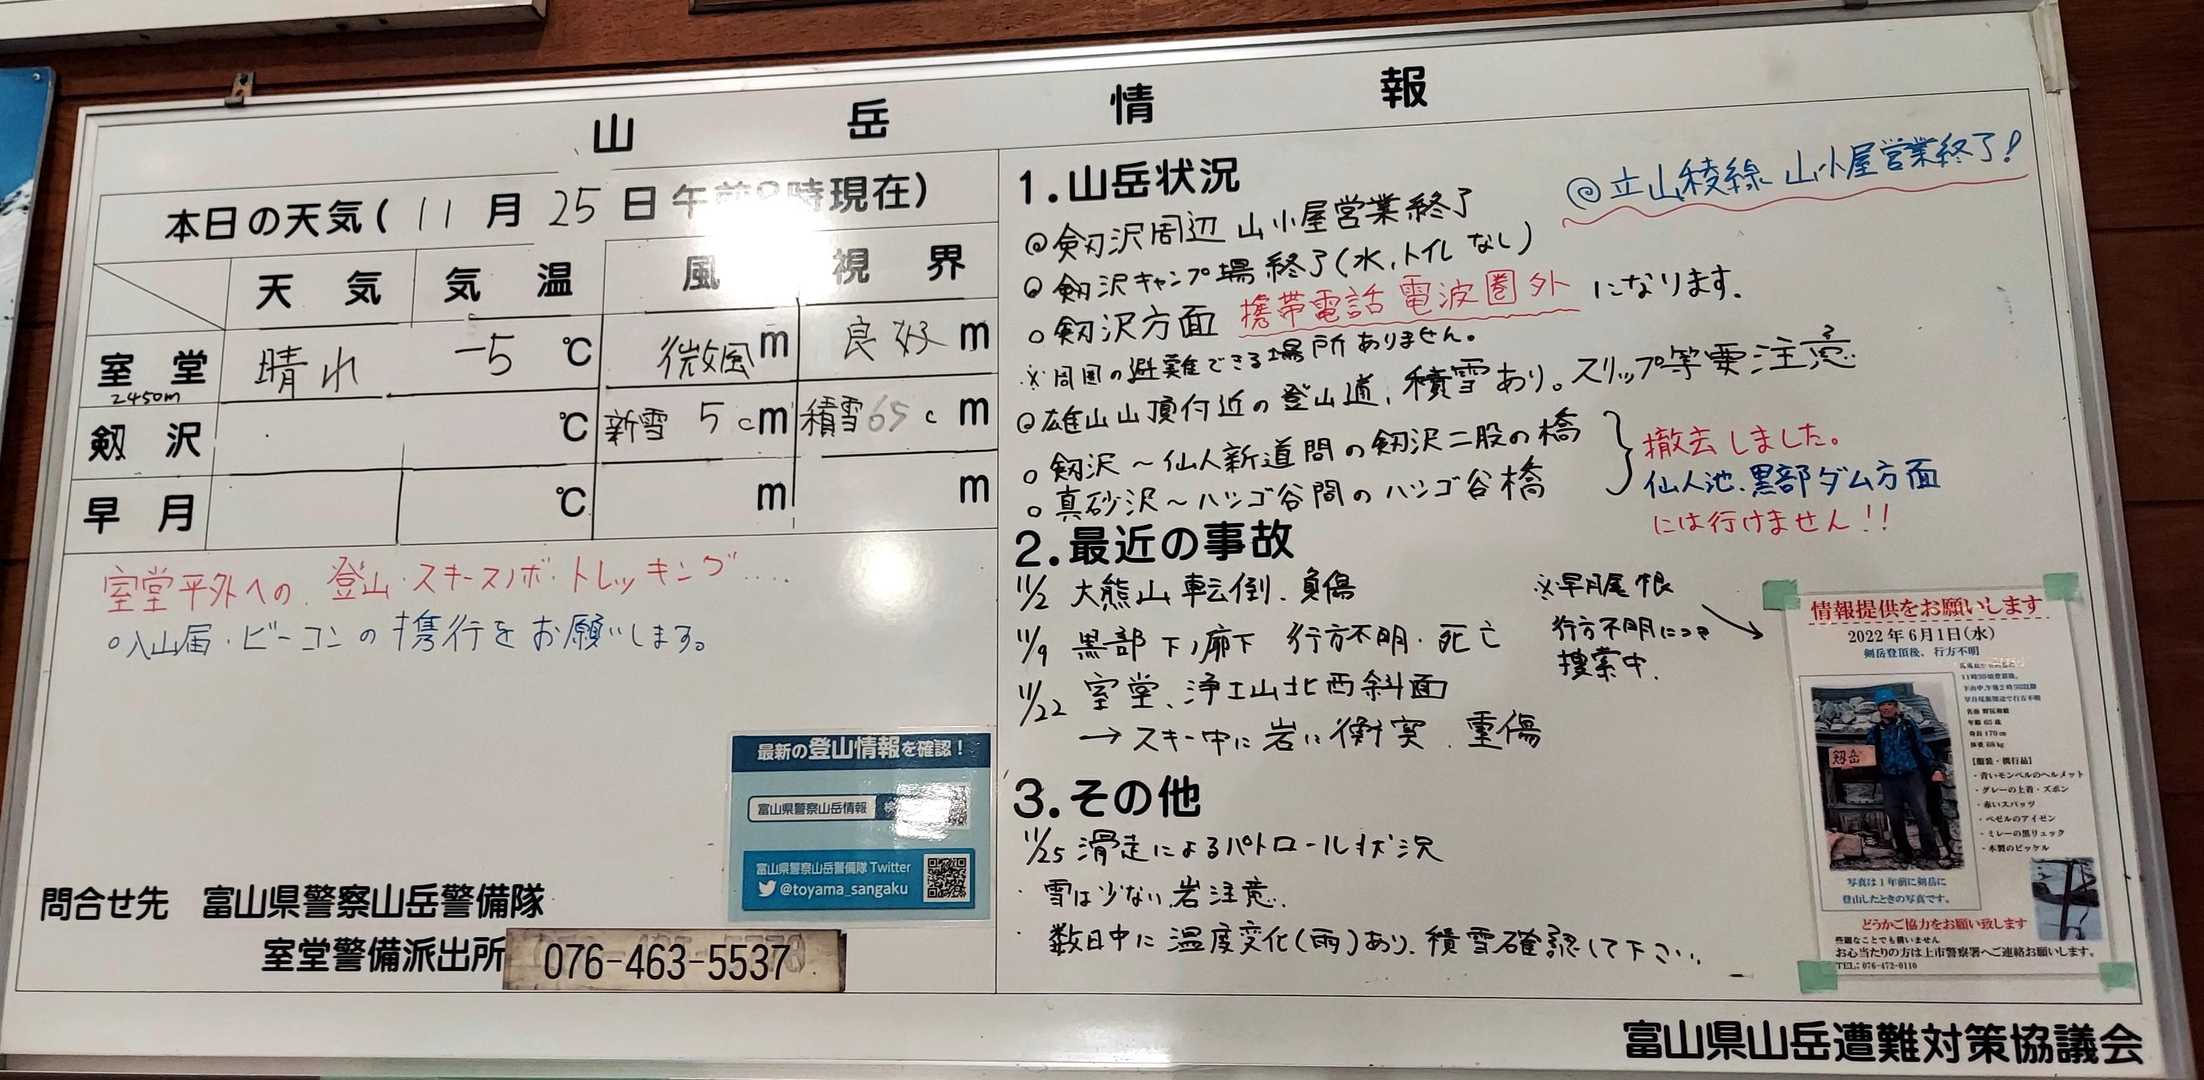 山岳情報
本日の天気( 11 月 25 日 午前 時現在)
天気 気温 風 視界
室堂 2450m 晴れ -5 ℃ 微風 m 良好 m
剱沢 ℃ 新雪 5 cm 積雪 65 c m
早月 ℃ m m
室堂平外への、登山・スキー・スノボ・トレッキング....
○入山届・ビーコンの携行をお願いします。
最新の登山情報を確認!
富山県警察山岳情報
富山県警察山岳警備隊 Twitter
@toyama_sangaku
問合せ先 富山県警察山岳警備隊
室堂警備派出所 076-463-5537
1.山岳状況
◎立山稜線 山小屋営業終了!
◎剱沢周辺 山小屋営業終了
◎剱沢キャンプ場 終了(水、トイレ なし)
○剱沢方面 携帯電話 電波圏外 になります。
※周囲の避難できる場所ありません。
◎雄山山頂付近の登山道、積雪あり。スリップ等要注意
○剱沢～仙人新道間の剱沢二股の橋
○真砂沢～ハシゴ谷間のハシゴ谷橋
撤去しました。
仙人池、黒部ダム方面
には行けません!!
2.最近の事故
11/2 大熊山 転倒、負傷
11/9 黒部 下ノ廊下 行方不明・死亡
11/22 室堂、浄土山北西斜面
→ スキー中に岩に衝突、重傷
※早月尾根
行方不明につき
捜索中.
3.その他
11/25 滑走によるパトロール状況
・雪は少ない岩注意.
・数日中に温度変化(雨)あり、積雪確認して下さい.
情報提供をお願いします
2022年6月1日(水)
剣岳登頂後、行方不明
年齢 65 歳
身長 170 cm
【服装・携行品】
・青いモンベルのヘルメット
・グレーの上着・ズボン
・赤いスパッツ
・ペゼルのアイゼン
・ミレーの黒リュック
・木製のピッケル
剱岳
写真は1年前に剣岳に
登山したときの写真です。
どうかご協力をお願い致します
些細なことでも構いません
お心当たりの方は上市警察署へご連絡お願いします。
TEL:076-472-0110
富山県山岳遭難対策協議会